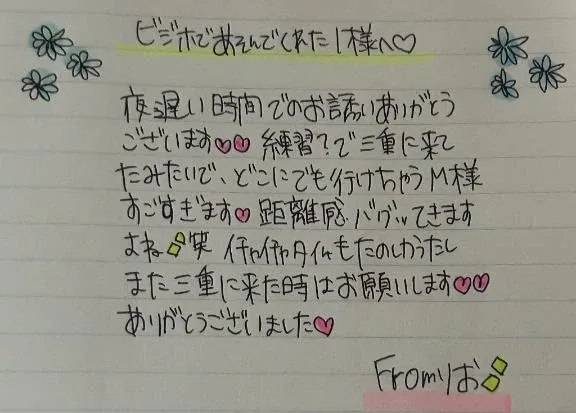 ビジホであそんでくれた I様へ♡
夜遅い時間でのお誘いありがとう
ございます♡♡ 練習?で三重に来て
たみたいで、どこにでも行けちゃうM様
すごすぎます♡ 距離感バグッてきます
よね 笑 イチャイチャタイムもたのしかったし
また三重に来た時はお願いします♡♡
ありがとうございました♡
Fromりお